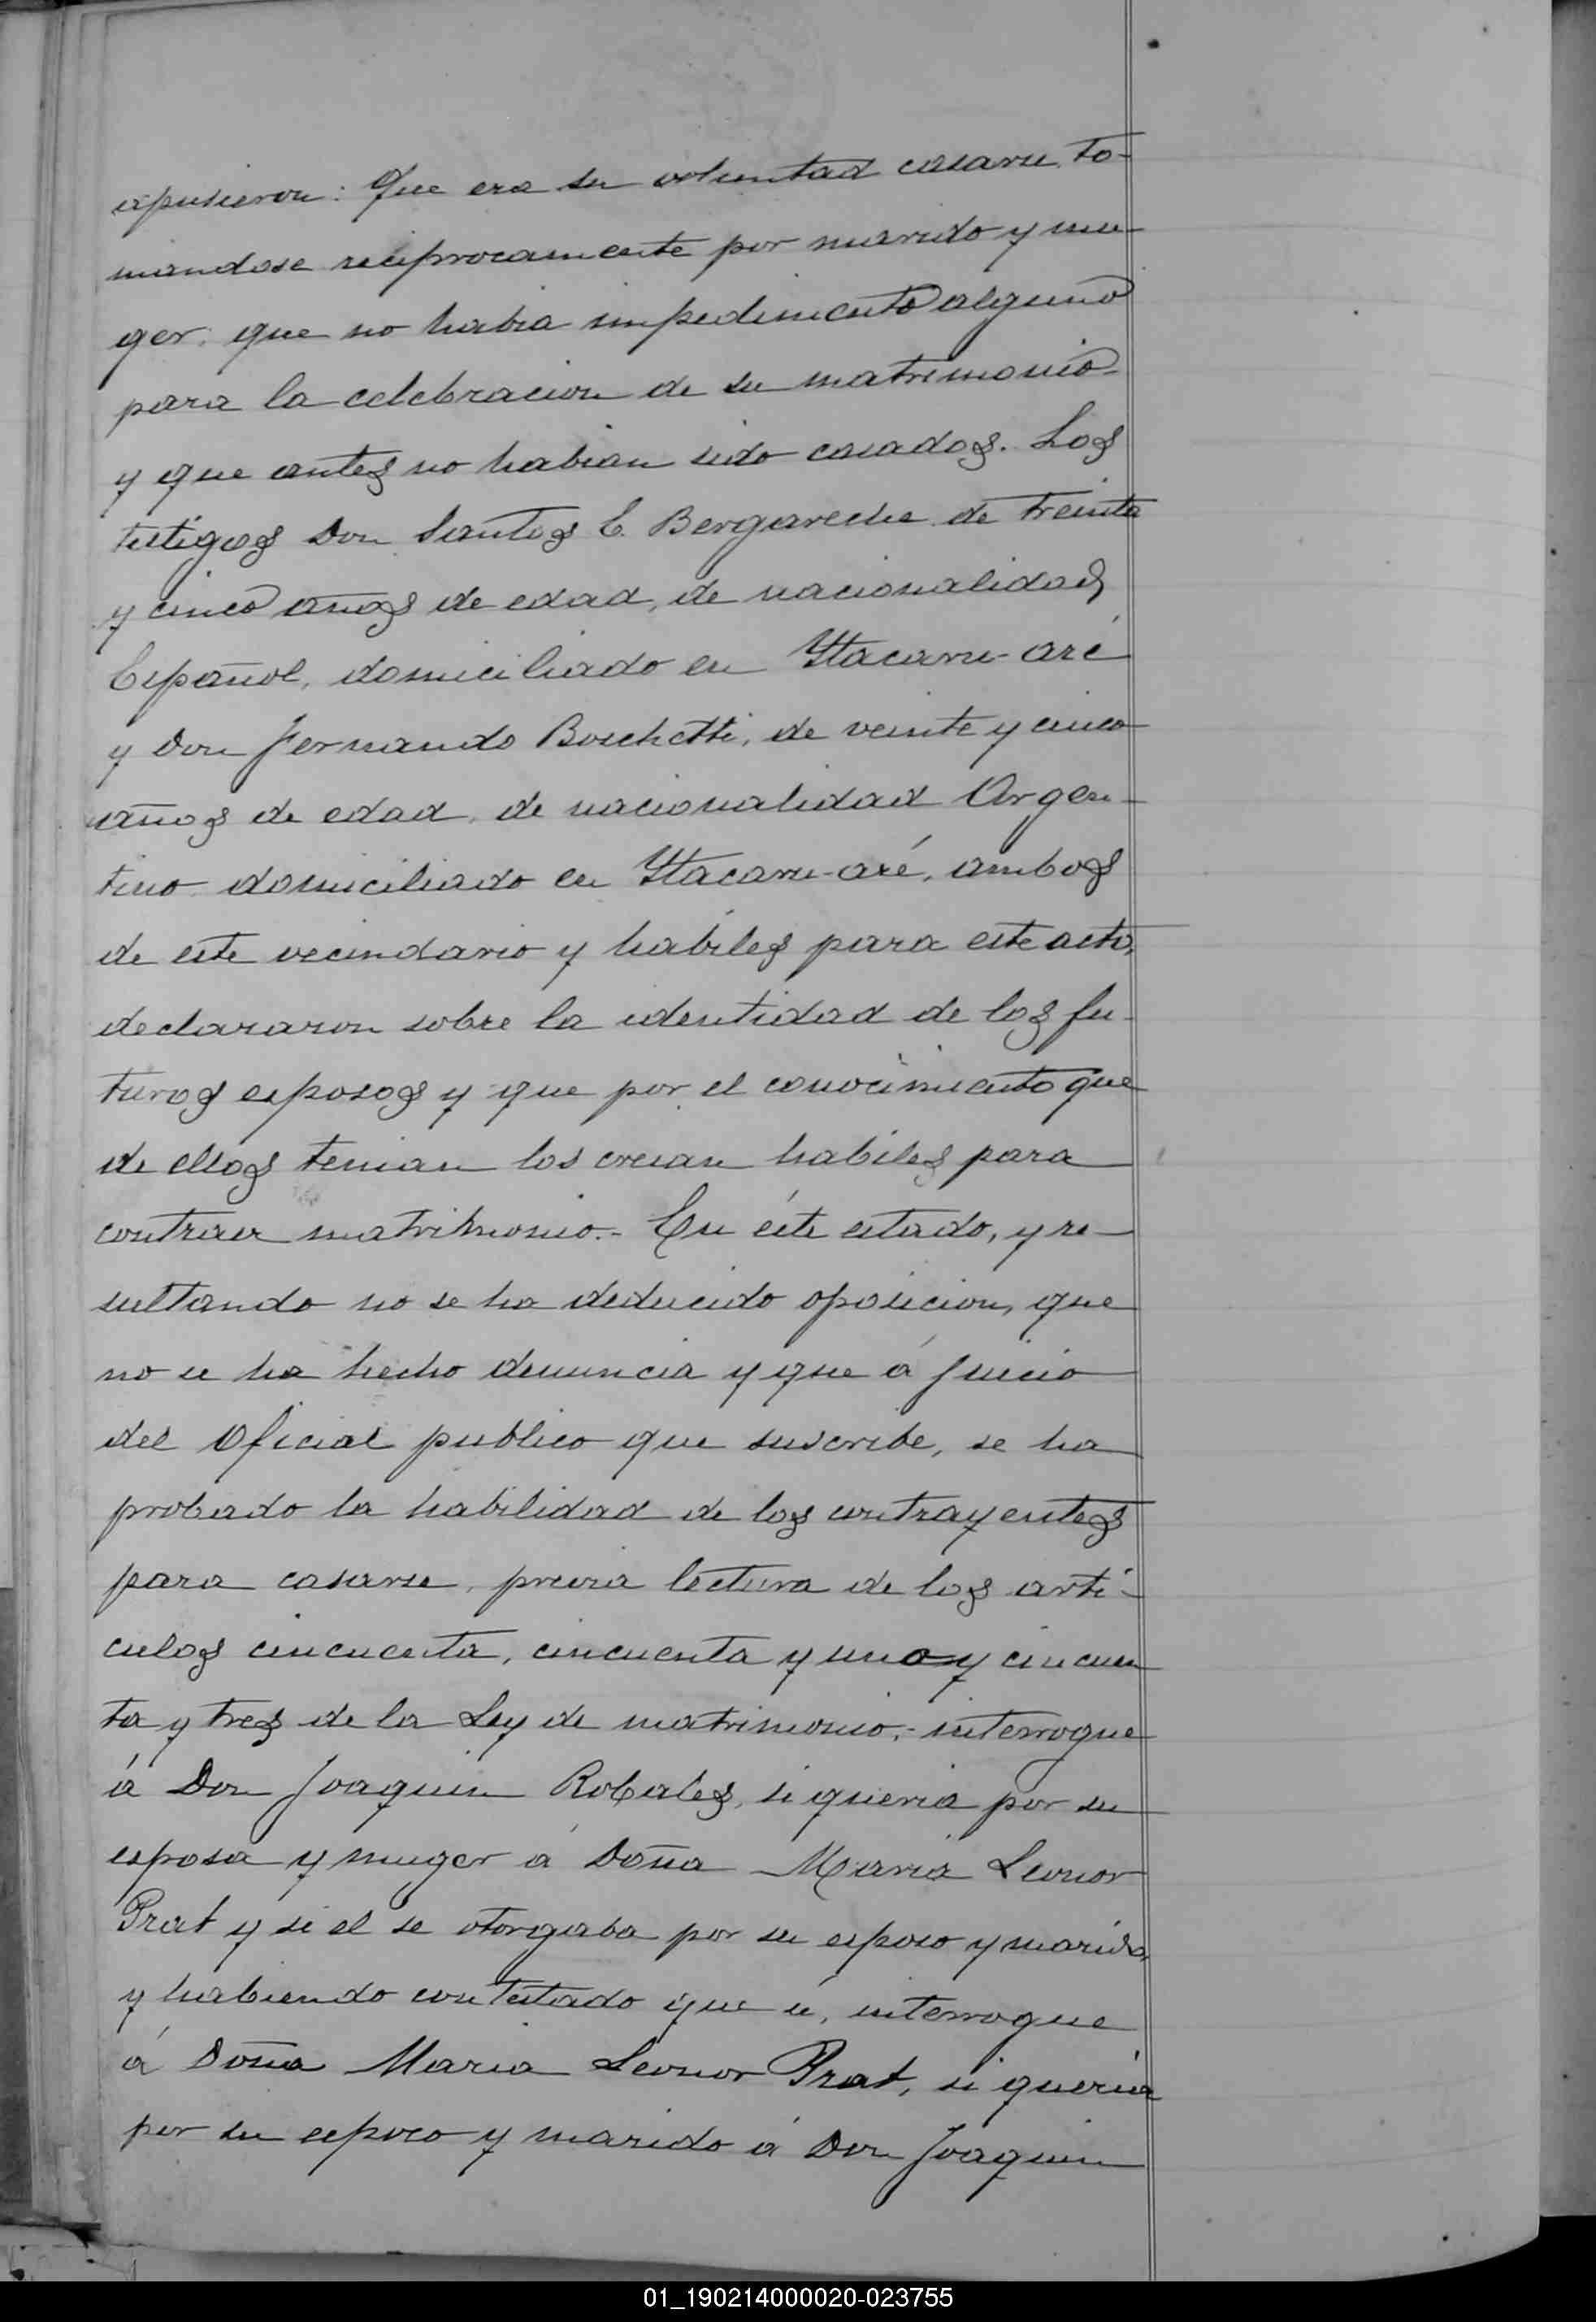 expusieron: Que era su voluntad casarse to-
mandose reciprocamente por marido y mu-
ger: que no habia impedimento alguno
para la celebracion de su matrimonio
y que antes no habian sido casados. Los
testigos Don Santos E. Bergareche de treinta
y cinco años de edad, de nacionalidad
Español, domiciliado en Ytacaru-aré
y Don Fernando Boschetti, de veinte y cinco
años de edad, de nacionalidad Argen-
tino domiciliado en Ytacaru-aré, ambos
de este vecindario y habiles para este acto,
declararon sobre la identidad de los fu-
turos esposos y que por el conocimiento que
de ellos tenian los creian habiles para
contraer matrimonio.- En éste estado, y re-
sultando no se ha deducido oposicion, que
no se ha hecho denuncia y que á juicio
del Oficial publico que suscribe, se ha
probado la habilidad de los contrayentes
para casarse, previa lectura de los arti-
culos cincuenta, cincuenta y uno y cincuen
ta y tres de la Ley de matrimonio,- interrogue
á Don Joaquin Robales, si queria por su
esposa y muger á Doña Maria Leonor
Prat y si el se otorgaba por su esposo y marido,
y habiendo contestado que si, interrogue
á Doña Maria Leonor Prat, si queria
por su esposo y marido á Don Joaquin
01_190214000020-023755